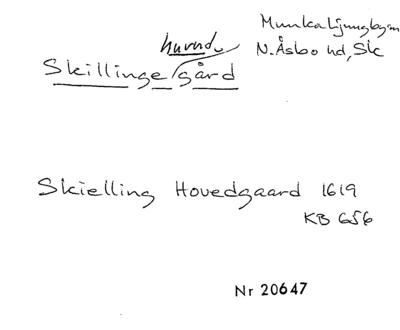 Munka Ljungbyen
N. Åsbo hd, Sk
huvud
Skillinge/gård
Skielling Hovedgaard 1619
KB 656
Nr 20647